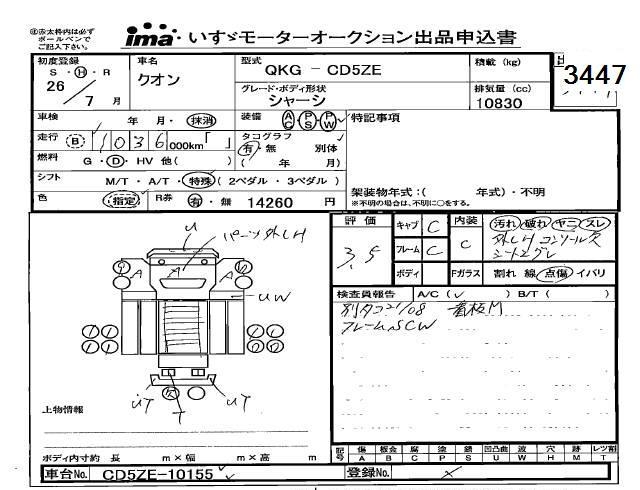 ◎赤太枠内は必ず
ボールペンで
ご記入下さい。
ima・いすゞモーターオークション出品申込書
初度登録
S・H・R
26
7 月
車名
クオン
型式
QKG - CD5ZE
グレード・ボディ形状
シャーシ
積載 (kg)
排気量 (cc)
10830
3447
車検 年 月・抹消
装備 AC・PS・PW
特記事項
走行 B 1036 000km「 」
タコグラフ
有・無 別体
( 年 月)
燃料 G・D・HV 他( )
シフト M/T・A/T・特殊(2ペダル・3ペダル)
架装物年式:( 年式)・不明
※不明の場合は、不明に○をする。
色 指定 R券 有・無 14260 円
評価 3.5
キャブ C
フレーム C
ボディ
内装 C
Fガラス
汚れ 破れ ヤニ スレ
外しH コンソール欠
割れ 線 点傷 イバリ
検査員報告 A/C( ) B/T( )
フレームSCW
U
パーツ外しH
A
A
A
UW
UT
T
UT
上物情報
ボディ内寸約 長 m×幅 m×高 m
記号 傷 板金 腐 塗 錆 凹凸曲 波 穴 跡 レツ割
A B C P S U W H M T
車台No. CD5ZE-10155
登録No.